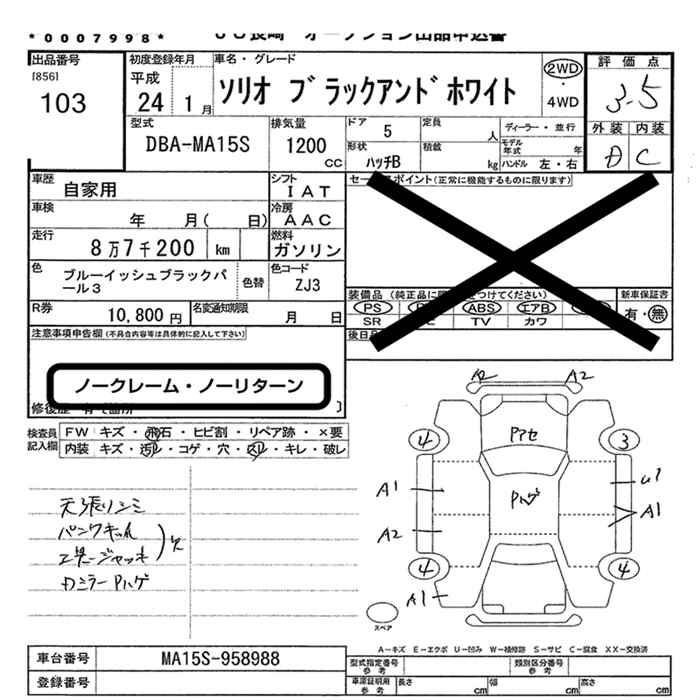 *0007998*
出品番号 初度登録年月 車名・グレード 評価点
[856] 平成 ソリオ ブラックアンドホワイト 2WD
103 24 1月 ・ 3.5
4WD
型式 排気量 ドア 5 定員 人 ディーラー・並行 外装 内装
DBA-MA15S 1200 CC 形状 ハッチB 積載 kg モデル年式 年 C
ハンドル 左・右
車歴 自家用 シフト IAT
車検 年 月( 日) 冷房 AAC
走行 8万7千200 km 燃料 ガソリン
色 ブルーイッシュブラックパール3 色替 色コード ZJ3
装備品 新車保証書
PS ABS エアB 有・無
SR TV カワ
R券 10,800円 名変通知期限 月 日
注意事項申告欄(不具合内容等は具体的に記入して下さい)
ノークレーム・ノーリターン
検査員記入欄 FW キズ・飛石・ヒビ割・リペア跡・×要
内装 キズ・汚レ・コゲ・穴・凹レ・キレ・破レ
A2 A2
4 3
A1 A1
A2
4 4
A1
天張りシミ
パンクキット
工具ージャッキ 欠
スペア
A-キズ E-エクボ U-凹み W-補修跡 S-サビ C-腐食 XX-交換済
車台番号 MA15S-958988
登録番号
型式指定番号 参考 類別区分番号 参考
車庫証明用 参考 長さ cm 幅 cm 高さ cm